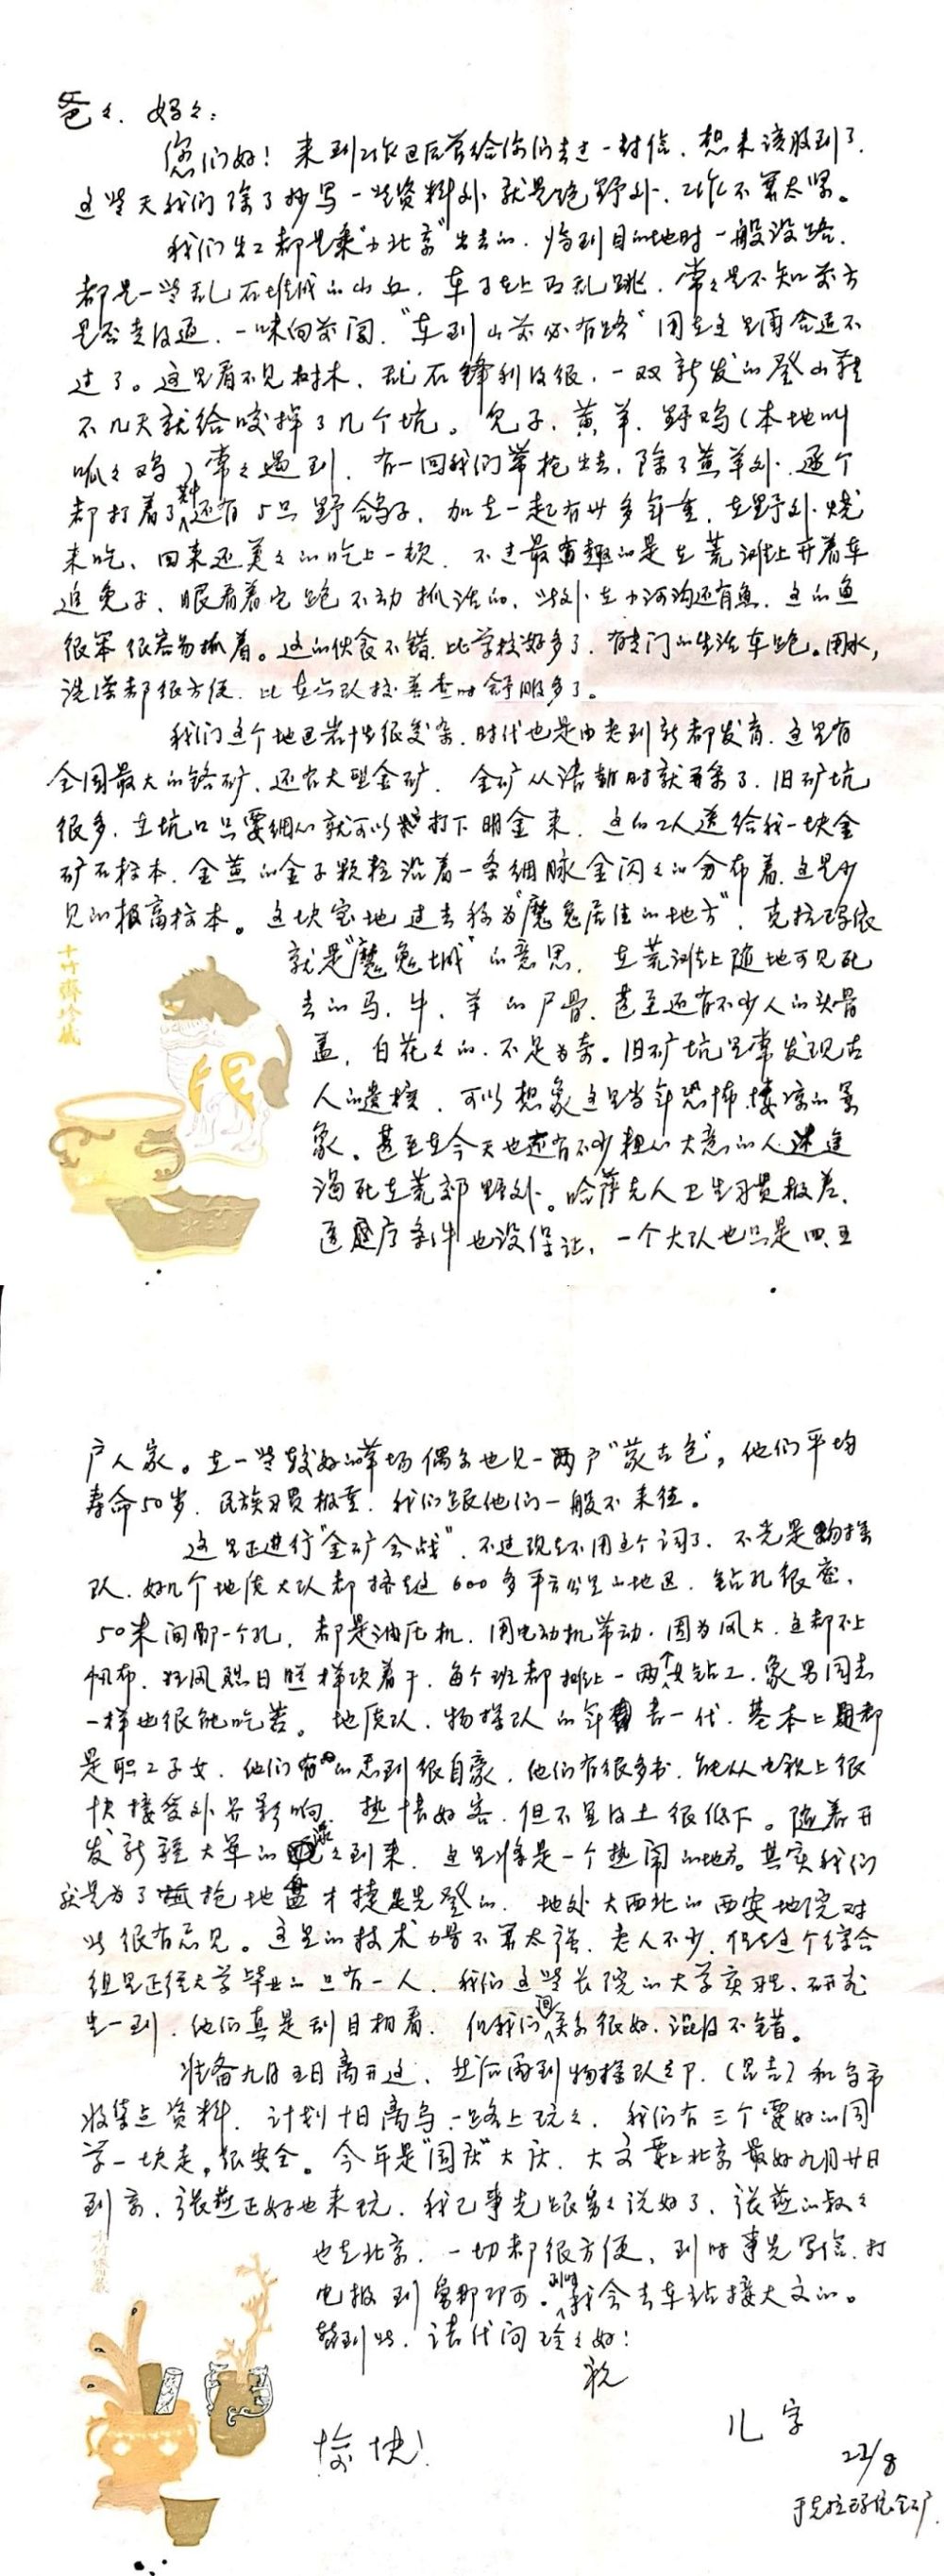 爸々、妈々：
您们好！来到工作区后曾给你们去过一封信，想来该收到了。
这些天我们除了抄写一些资料外就是跑野外，工作不算太紧。
我们出工都是乘"小北京"出去的，临到目的地时一般没路，
都是一些乱石堆成的山丘，车子在上面乱跳，常々是不知前方
是否走得通，一味向前闯，"车到山前必有路"用在这里再合适不
过了。这里看不见树木，乱石锋利得很，一双新发的登山鞋
不几天就给咬掉了几个坑。兔子、黄羊、野鸡（本地叫
呱々鸡）常々遇到，有一回我们带枪出去，除了黄羊外，逐个
都打着了，还有5只野鸽子，加在一起有廿多斤重，在野外烧
来吃，回来还美々的吃上一顿，不过最有趣的是在荒滩上开着车
追兔子，眼看着它跑不动抓活的，此外在小河沟还有鱼，这的鱼
很笨很容易抓着。这的伙食不错，比学校好多了，有专门的生活车跑。用水，
洗澡都很方便，比在分队搞普查时舒服多了。
我们这个地区岩性很复杂，时代也是由老到新都发育，这里有
全国最大的铬矿，还有大型金矿，金矿从清朝时就开采了，旧矿坑
很多，在坑口只要细心就可以打下明金来，这的工人送给我一块金
矿石标本，金黄的金子颗粒沿着一条细脉金闪々的分布着，这是少
见的极高标本。这块宝地过去称为"魔鬼居住的地方"，克拉玛依
十竹斋珍藏
就是"魔鬼城"的意思，在荒滩上随地可见死
去的马、牛、羊的尸骨，甚至还有不少人的头骨
盖，白花々的，不足为奇。旧矿坑里常发现古
人的遗核，可以想象这里当年恐怖、凄凉的景
象，甚至在今天也还有不少粗心大意的人迷途
渴死在荒郊野外。哈萨克人卫生习惯极差，
医疗条件也没保证，一个大队也只是四、五
户人家。在一些较好的草场偶尔也见一两户"蒙古包"，他们平均
寿命50岁，民族习惯极重，我们跟他们一般不来往。
这里正进行"金矿会战"，不过现在不用这个词了，不光是物探
队，好几个地质大队都挤在这600多平方公里的地区，钻孔很密，
50米间隔一个孔，都是油压机，用电动机带动，因为风大，这都不上
帆布，狂风烈日照样顶着干，每个班都排上一两个女钻工，象男同志
一样也很能吃苦。地质队、物探队的年青一代，基本上都
是职工子女，他们感到很自豪，他们有很多书，能从电视上很
快接受外界影响，热情好客，但不足风土很低下。随着开
发新疆大军的滚々到来，这里将是一个热闹的地方。其实我们
就是为了抢地盘才捷足先登的，地处大西北的西安地院对
此很有意见。这里的技术力量不算太强，老人不少，但在这个综合
组里正经大学毕业的只有一人，我们这些长院的大学实习生、研究
生一到，他们真是刮目相看，但我们间关系很好，混得不错。
准备九月五日离开这，然后再到物探队部，（昌吉）和乌市
收集点资料，计划十日离乌一路上玩々，我们有三个要好的同
学一块走，很安全。今年是"国庆"大庆，大文要上北京最好九月廿日
到京，张燕正好也来玩，我已事先跟舅々说好了，张燕的叔々
十竹斋藏
也在北京，一切都很方便，到时事先写信、打
电报到舅那即可。到时我会去车站接大文的。
暂到此，请代问玲々好！
祝
愉快！
儿字
22/8
于克拉玛依金矿